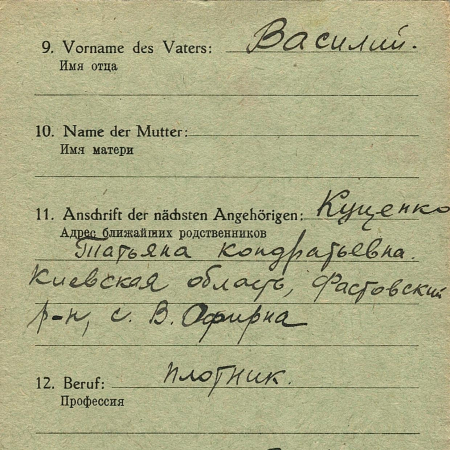 9. Vorname des Vaters: Василий.
Имя отца
10. Name der Mutter:
Имя матери
11. Anschrift der nächsten Angehörigen: Кущенко
Адрес ближайших родственников
Татьяна кондратьевна.
Киевская область, Фастовский
р-н, с. В. Офирна
12. Beruf: плотник.
Профессия